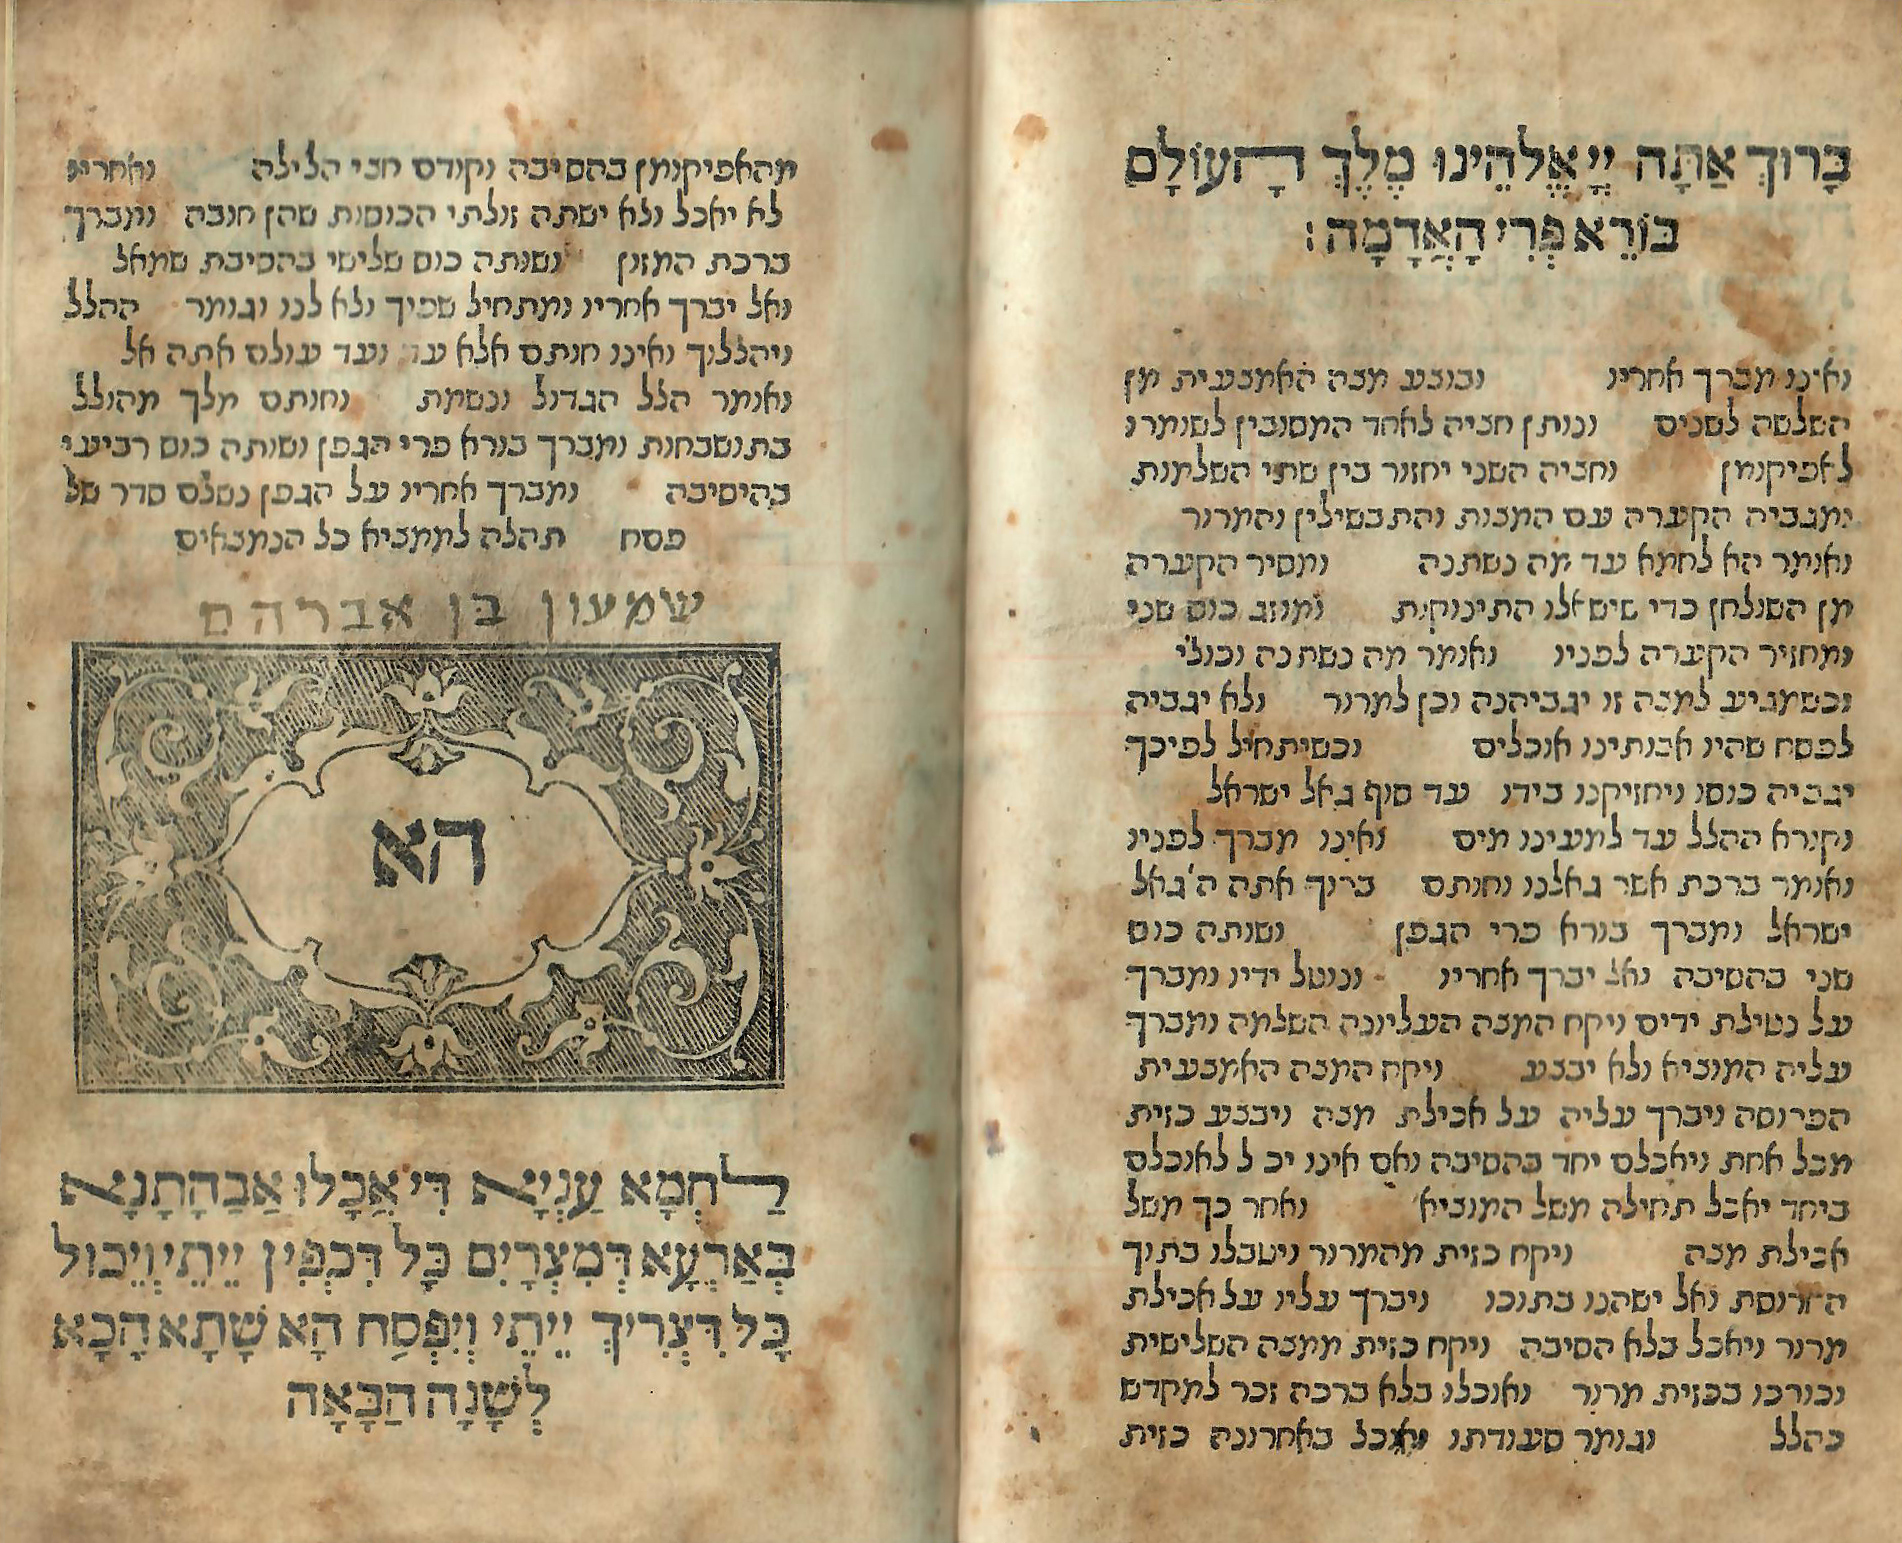 בָּרוּךְ אַתָּה יְיָ אֱלֹהֵינוּ מֶלֶךְ הָעוֹלָם
בּוֹרֵא פְּרִי הָאֲדָמָה:
ואינו מברך אחריו ובוצע מצה האמצעית מן
השלשה לשנים ונותן חציה לאחד המסובין לשומרו
לאפיקומן וחציה השני יחזור בין שתי השלמות
ומגביה הקערה עם המצות והתבשילין והמרור
ואומר הא לחמא עד מה נשתנה ומסיר הקערה
מן השולחן כדי שישאלו התינוקות ומוזג כוס שני
ומחזיר הקערה לפניו ואומר מה נשתנה וכולי
וכשמגיע למצה זו יגביהנה וכן למרור ולא יגביה
לפסח שהיו אבותינו אוכלים וכשיתחיל לפיכך
יגביה כוסו ויחזיקנו בידו עד סוף גאל ישראל
וקורא ההלל עד למעינו מים ואינו מברך לפניו
ואומר ברכת אשר גאלנו וחותם ברוך אתה ה' גאל
ישראל ומברך בורא פרי הגפן ושותה כוס
שני בהסיבה ואל יברך אחריו ונוטל ידיו ומברך
על נטילת ידים ויקח המצה העליונה השלמה ומברך
עליה המוציא ולא יבצע ויקח המצה האמצעית
הפרוסה ויברך עליה על אכילת מצה ויבצע כזית
מכל אחת ויאכלם יחד בהסיבה ואם אינו יכל לאוכלם
ביחד יאכל תחילה משל המוציא ואחר כך משל
אכילת מצה ויקח כזית מהמרור ויטבלו בתוך
החרוסת ואל ישהנו בתוכו ויברך עליו על אכילת
מרור ויאכל בלא הסיבה ויקח כזית ממצה השלישית
וכורכו בכזית מרור ואוכלו בלא ברכה זכר למקדש
כהלל וגומר סעודתו ואוכל באחרונה כזית
מהאפיקומן בהסיבה וקודם חצי הלילה ואחריו
לא יאכל ולא ישתה זולתי הכוסות שהן חובה ומברך
ברכת המזון ושותה כוס שלישי בהסיבת שמאל
ואל יברך אחריו ומתחיל שפוך ולא לנו וגומר ההלל
ויהללוך ואינו חותם אלא עד ועד עולם אתה אל
ואומר הלל הגדול ונשמת וחותם מלך מהולל
בתושבחות ומברך בורא פרי הגפן ושותה כוס רביעי
בהיסיבה ומברך אחריו על הגפן נשלם סדר של
פסח תהלה לממציא כל הנמצאים
שמעון בן אברהם
הא
לַחְמָא עַנְיָא דִּי אֲכָלוּ אַבַהָתָנָא
בְּאַרְעָא דְּמִצְרָיִם כָּל דִּכְפִּין יֵיתֵי וְיֵכוֹל
כָּל דִּצְרִיךְ יֵיתֵי וְיִפְסַח הָא שָׁתָּא הָכָא
לְשָׁנָה הַבָּאָה